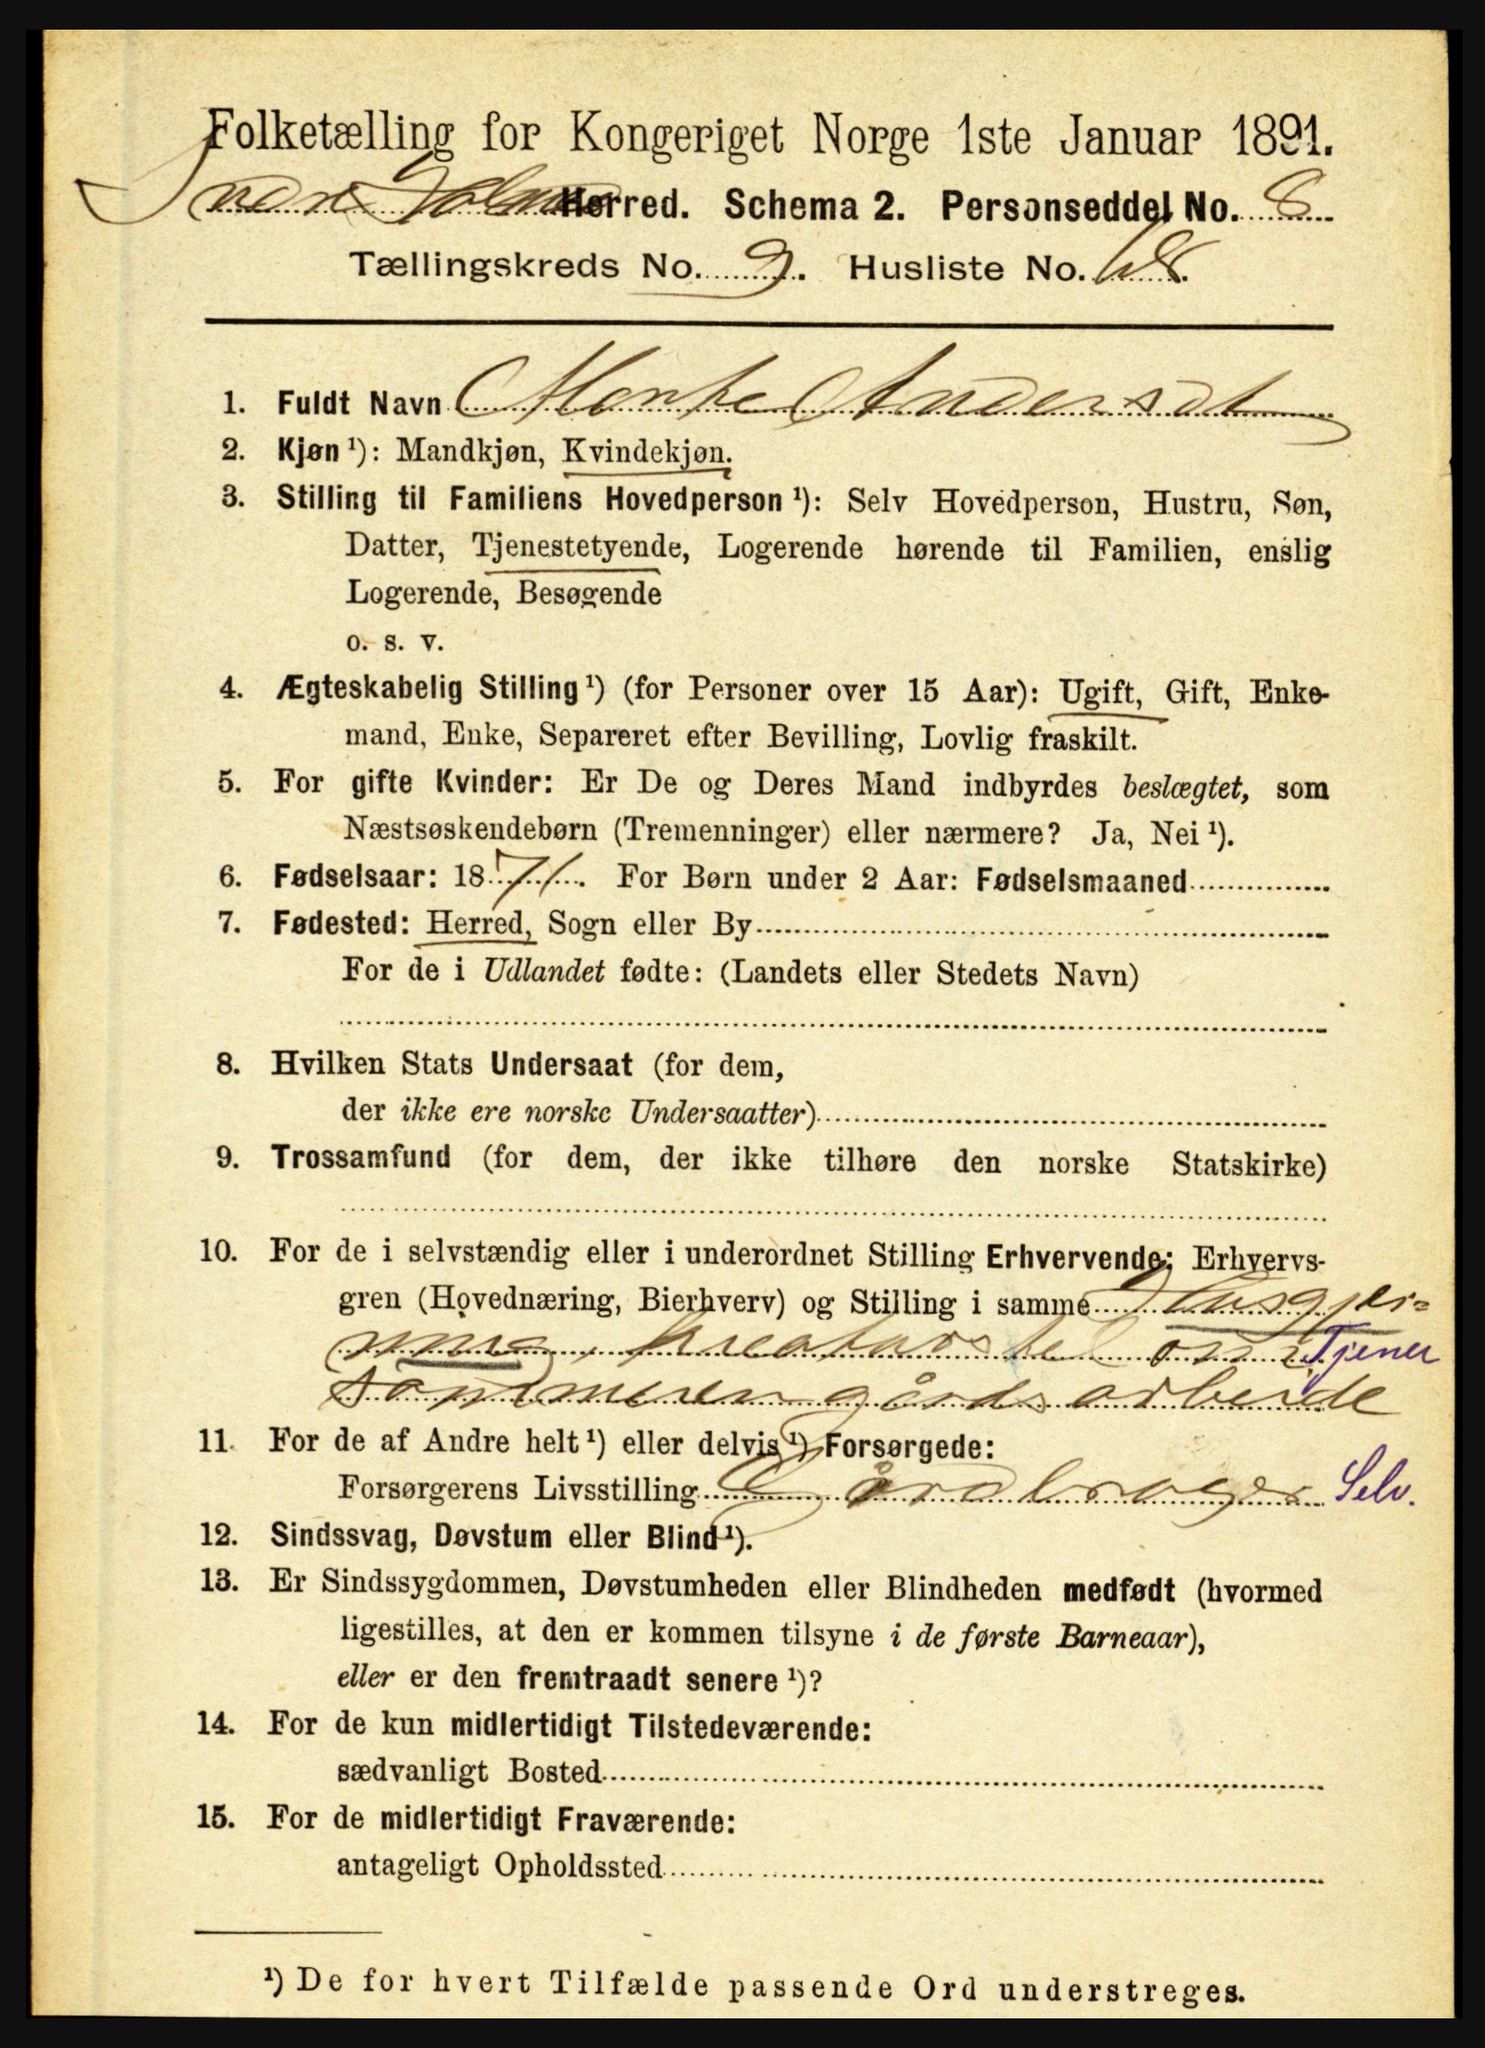 Folketælling for Kongeriget Norge 1ste Januar 1891.
Herred. Schema 2. Personseddel No. 8
Tællingskreds No. 9. Husliste No. 68.
1. Fuldt Navn Marte Andersdt
2. Kjøn ¹): Mandkjøn, Kvindekjøn.
3. Stilling til Familiens Hovedperson ¹): Selv Hovedperson, Hustru, Søn,
Datter, Tjenestetyende, Logerende hørende til Familien, enslig
Logerende, Besøgende
o. s. v.
4. Ægteskabelig Stilling ¹) (for Personer over 15 Aar): Ugift, Gift, Enke-
mand, Enke, Separeret efter Bevilling, Lovlig fraskilt.
5. For gifte Kvinder: Er De og Deres Mand indbyrdes beslægtet, som
Næstsøskendebørn (Tremenninger) eller nærmere? Ja, Nei ¹).
6. Fødselsaar: 1871. For Børn under 2 Aar: Fødselsmaaned
7. Fødested: Herred, Sogn eller By
For de i Udlandet fødte: (Landets eller Stedets Navn)
8. Hvilken Stats Undersaat (for dem,
der ikke ere norske Undersaatter)
9. Trossamfund (for dem, der ikke tilhøre den norske Statskirke)
10. For de i selvstændig eller i underordnet Stilling Erhvervende: Erhvervs-
gren (Hovednæring, Bierhverv) og Stilling i samme Husgjer=
ning, kreaturstel om Tjener
sommeren gårdsarbeide
11. For de af Andre helt ¹) eller delvis ¹) Forsørgede:
Forsørgerens Livsstilling Gårdbruger Selv.
12. Sindssvag, Døvstum eller Blind ¹).
13. Er Sindssygdommen, Døvstumheden eller Blindheden medfødt (hvormed
ligestilles, at den er kommen tilsyne i de første Barneaar),
eller er den fremtraadt senere ¹)?
14. For de kun midlertidigt Tilstedeværende:
sædvanligt Bosted
15. For de midlertidigt Fraværende:
antageligt Opholdssted
¹) De for hvert Tilfælde passende Ord understreges.